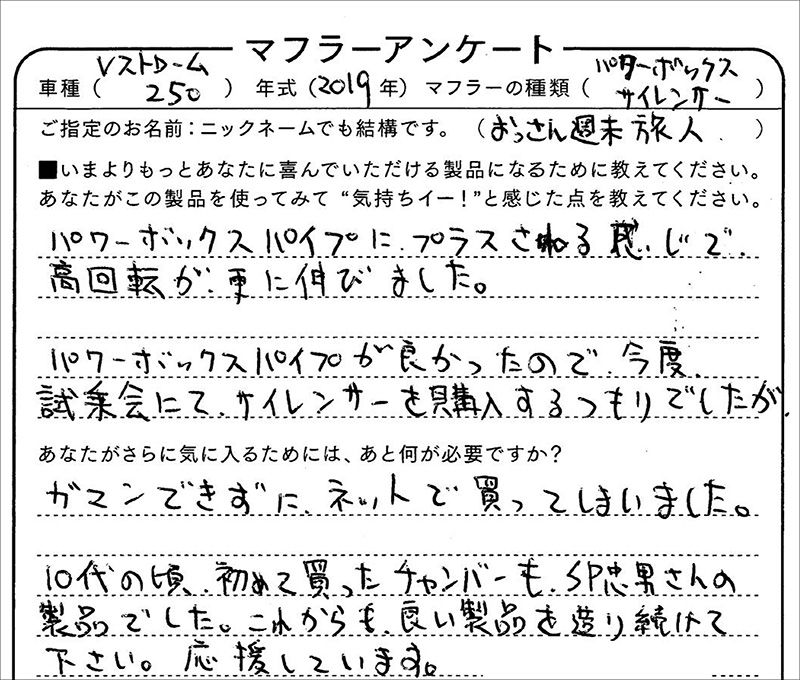 マフラーアンケート
車種（Vストローム250） 年式（2019年） マフラーの種類（パワーボックスサイレンサー）
ご指定のお名前：ニックネームでも結構です。（おっさん週末旅人）
■いまよりもっとあなたに喜んでいただける製品になるために教えてください。
あなたがこの製品を使ってみて “気持ちイー！”と感じた点を教えてください。
パワーボックスパイプに、プラスされる感じで、
高回転が、更に伸びました。
パワーボックスパイプが良かったので、今度、
試乗会にて、サイレンサーを購入するつもりでしたが、
あなたがさらに気に入るためには、あと何が必要ですか？
ガマンできずに、ネットで買ってしまいました。
10代の頃、初めて買ったチャンバーも、SP忠男さんの
製品でした。これからも、良い製品を造り続けて
下さい。応援しています。